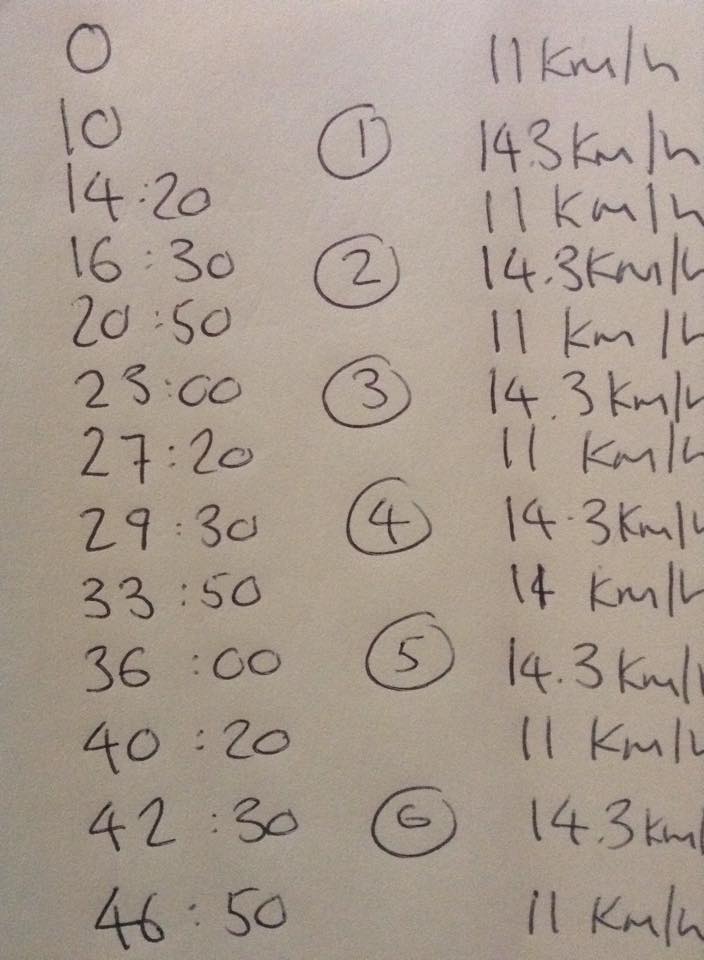 0 11 Km/h
10 ① 14.3 Km/h
14:20 11 Km/h
16:30 ② 14.3 Km/h
20:50 11 Km/h
23:00 ③ 14.3 Km/h
27:20 11 Km/h
29:30 ④ 14.3 Km/h
33:50 11 Km/h
36:00 ⑤ 14.3 Km/h
40:20 11 Km/h
42:30 ⑥ 14.3 Km/
46:50 11 Km/h